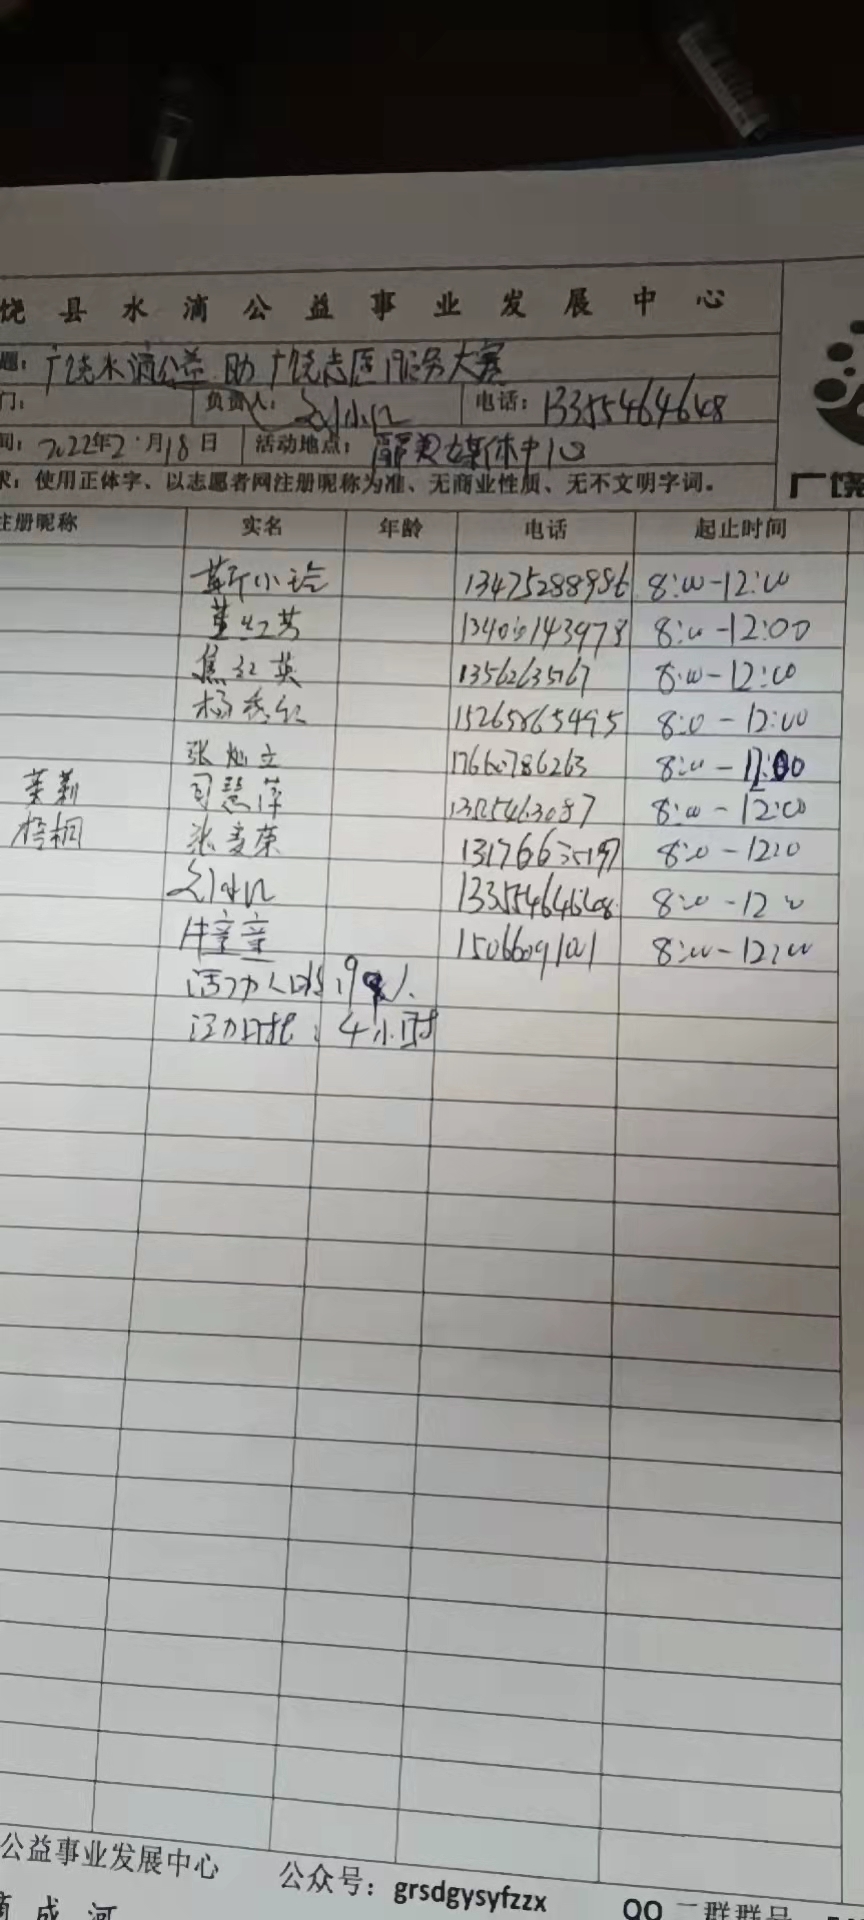 饶县水滴公益事业发展中心
题：广饶水滴公益助广饶志愿服务大赛
门： 负责人： 电话：13355464648
间：2022年2月18日 活动地点：媒体中心
求：使用正体字、以志愿者网注册昵称为准、无商业性质、无不文明字词。
广饶
注册昵称 实名 年龄 电话 起止时间
靳小玲 13475288986 8:00-12:00
董红芳 8:00-12:00
焦红英 13562635167 8:00-12:00
杨秀红 15265865495 8:00-12:00
张灿立 17660786263 8:00-12:00
茉莉 司慧萍 13255463087 8:00-12:00
梧桐 张爱荣 8:00-12:0
13355464648 8:00-12:00
牛章章 15066091101 8:00-12:00
活动人数：9人
活动时长：4小时
公益事业发展中心 公众号：grsdgysyfzzx QQ二群群号
滴成河